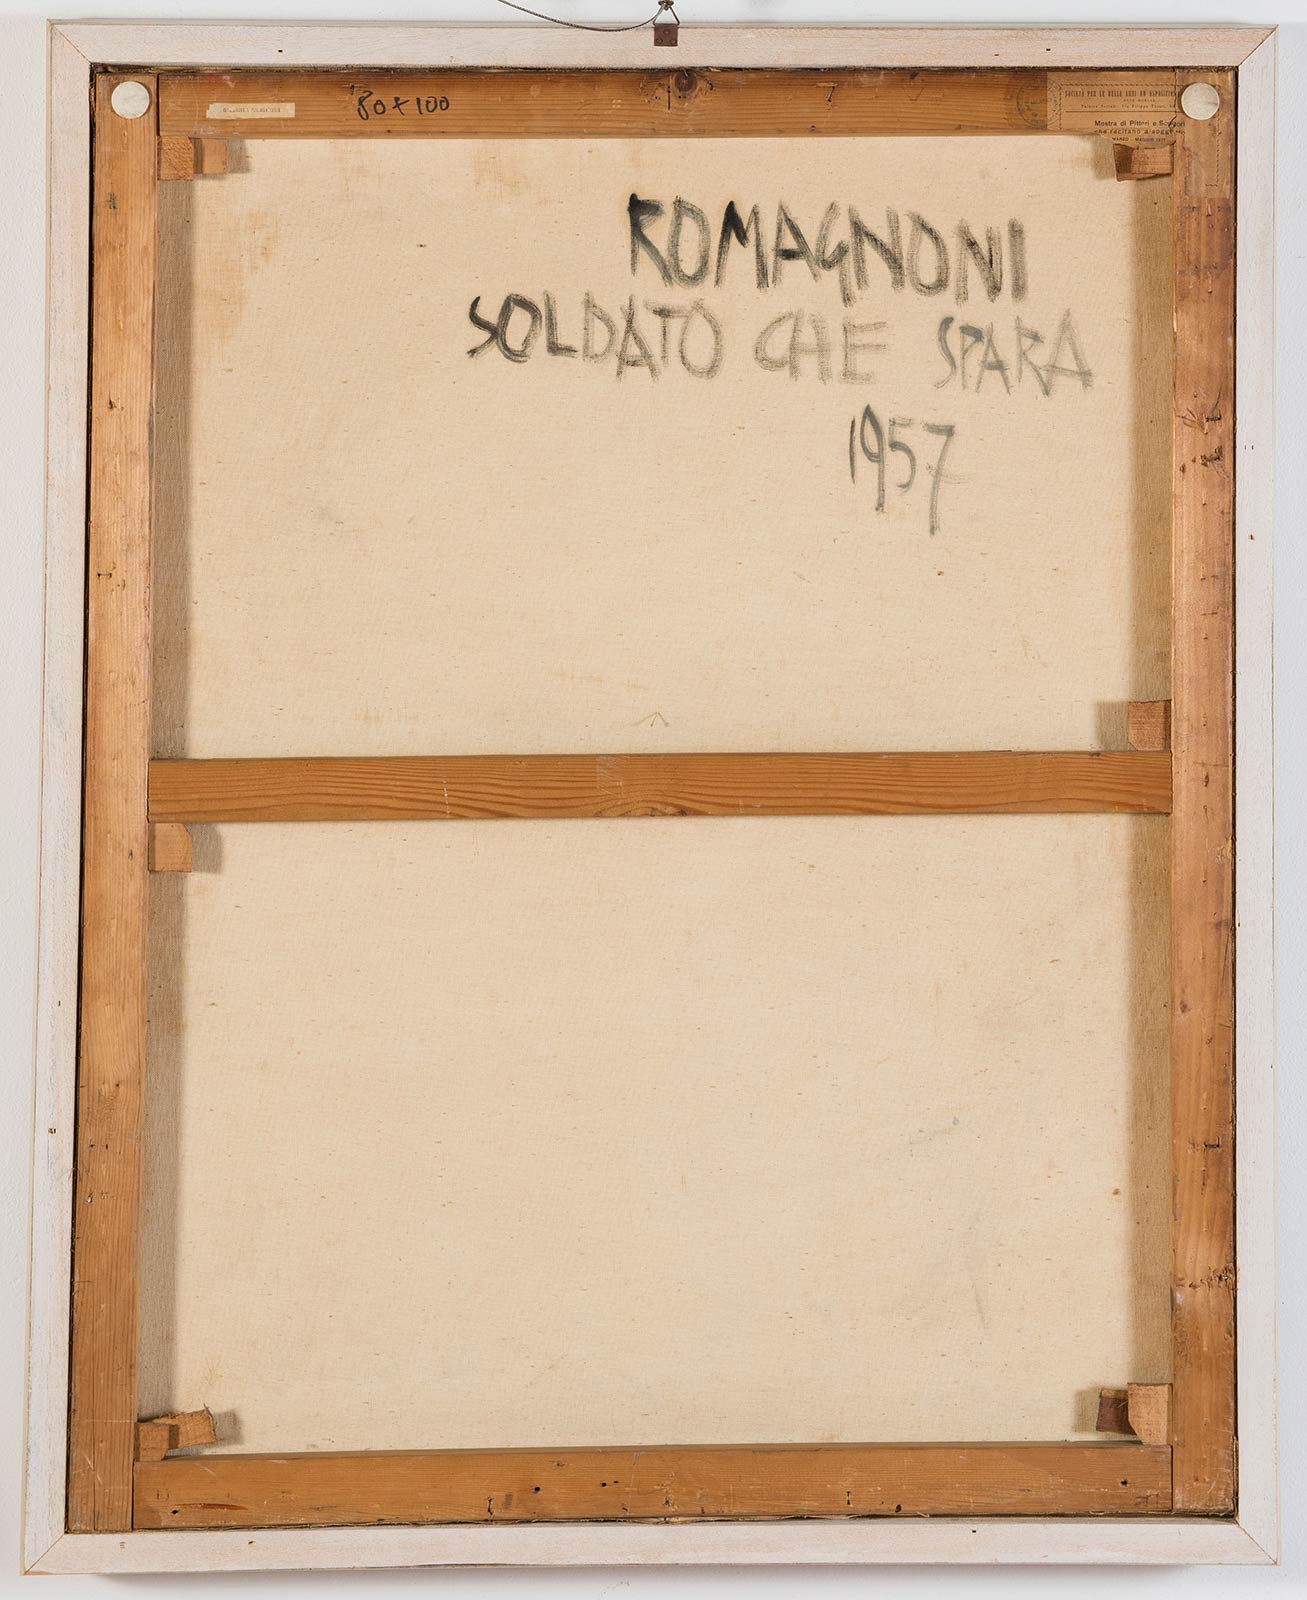 80 x 100
SOCIETÀ PER LE BELLE ARTI ED ESPOSIZIONE
Mostra di Pittori e Scultori
che recitano a soggetto
MARZO - MAGGIO
ROMAGNONI
SOLDATO CHE SPARA
1957